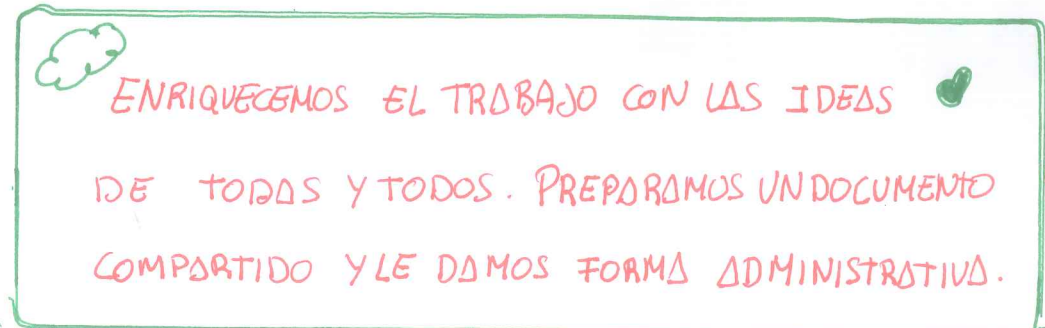 ENRIQUECEMOS EL TRABAJO CON LAS IDEAS
DE TODAS Y TODOS. PREPARAMOS UN DOCUMENTO
COMPARTIDO Y LE DAMOS FORMA ADMINISTRATIVA.